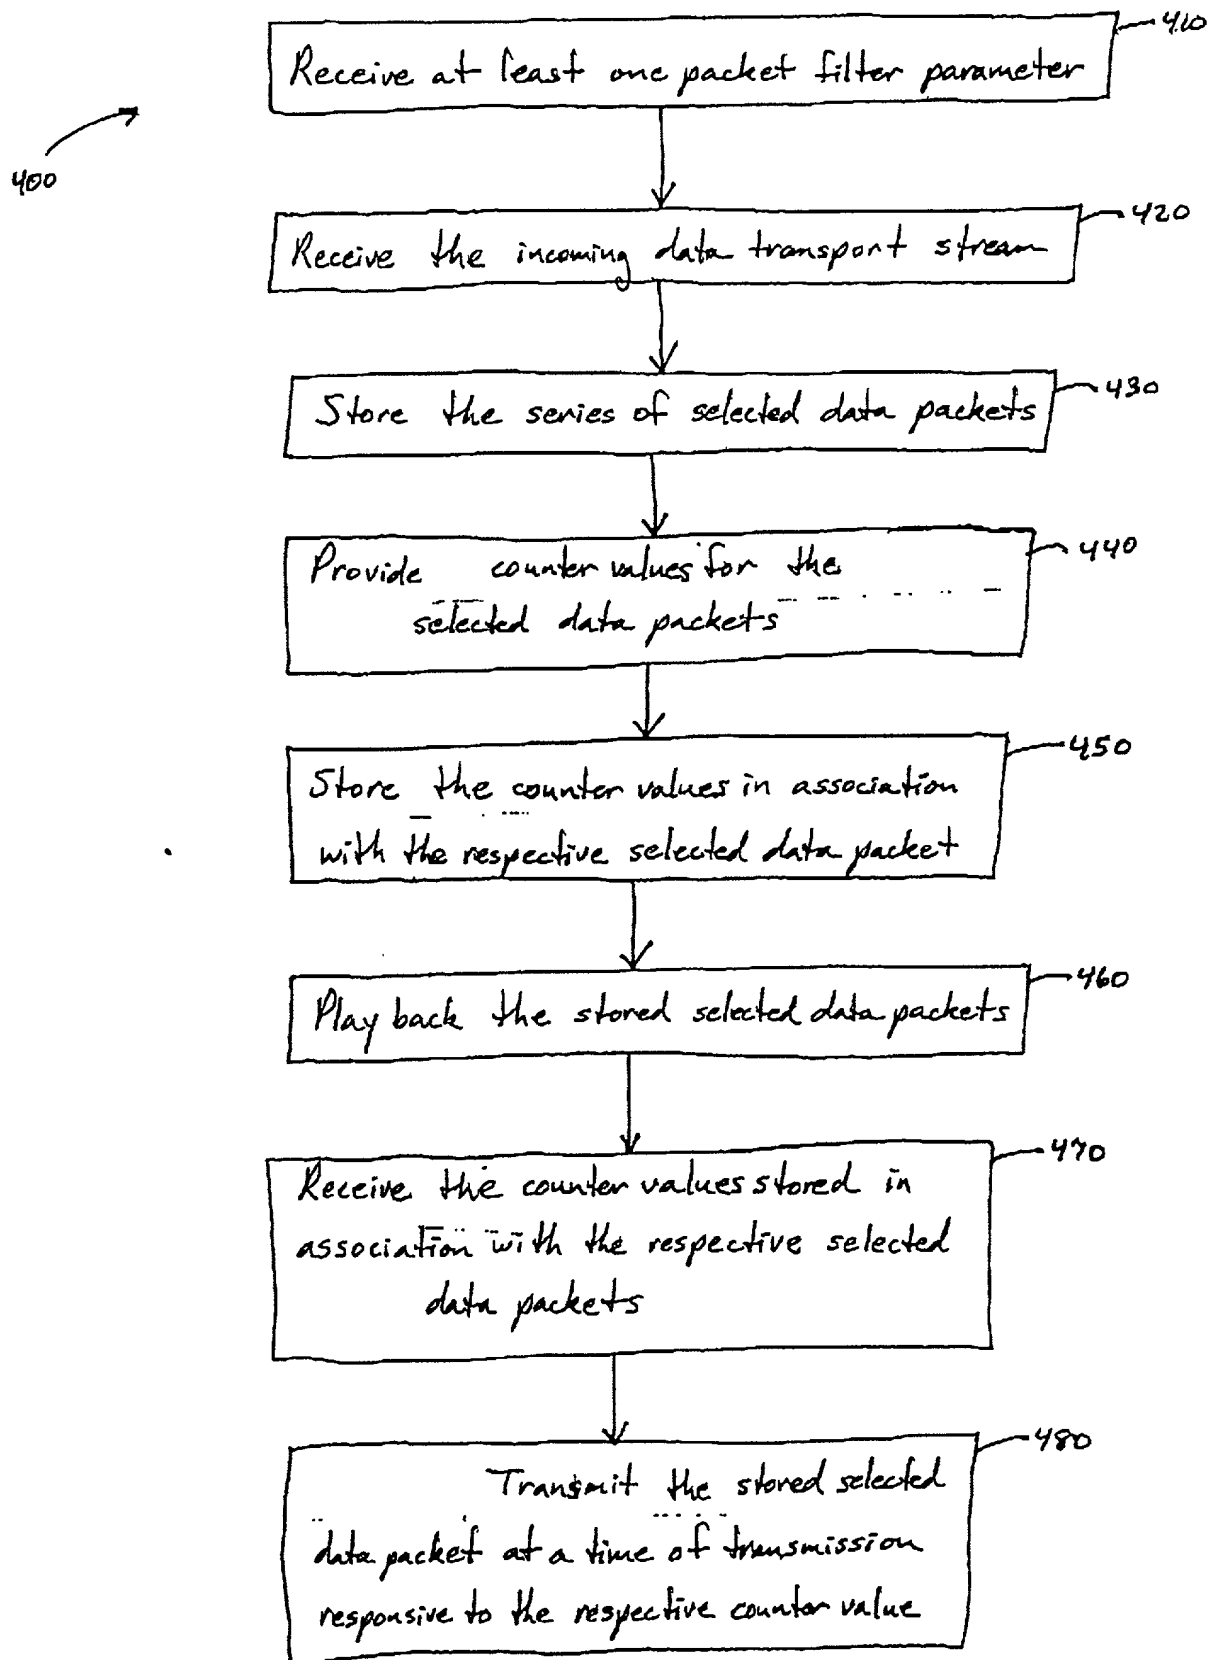 410
Receive at least one packet filter parameter
400
420
Receive the incoming data transport stream
430
Store the series of selected data packets
440
Provide counter values for the
selected data packets
450
Store the counter values in association
with the respective selected data packet
460
Play back the stored selected data packets
470
Receive the counter values stored in
association with the respective selected
data packets
480
Transmit the stored selected
data packet at a time of transmission
responsive to the respective counter value